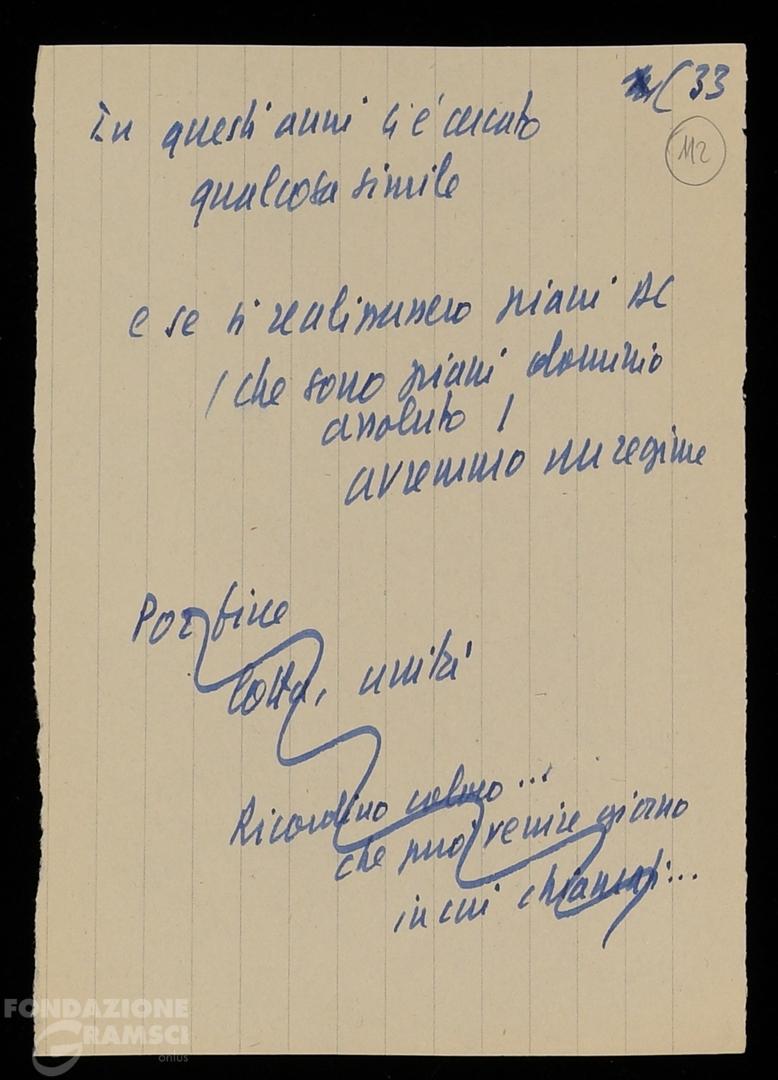 33
112
In questi anni si è cercato
qualcosa simile
e se si realizzassero piani AC
(che sono piani dominio
assoluto)
avremmo un regime
Por fine
lotta, unità
Ricordino coloro...
che può venire giorno
in cui chiamati...
FONDAZIONE
GRAMSCI
onlus